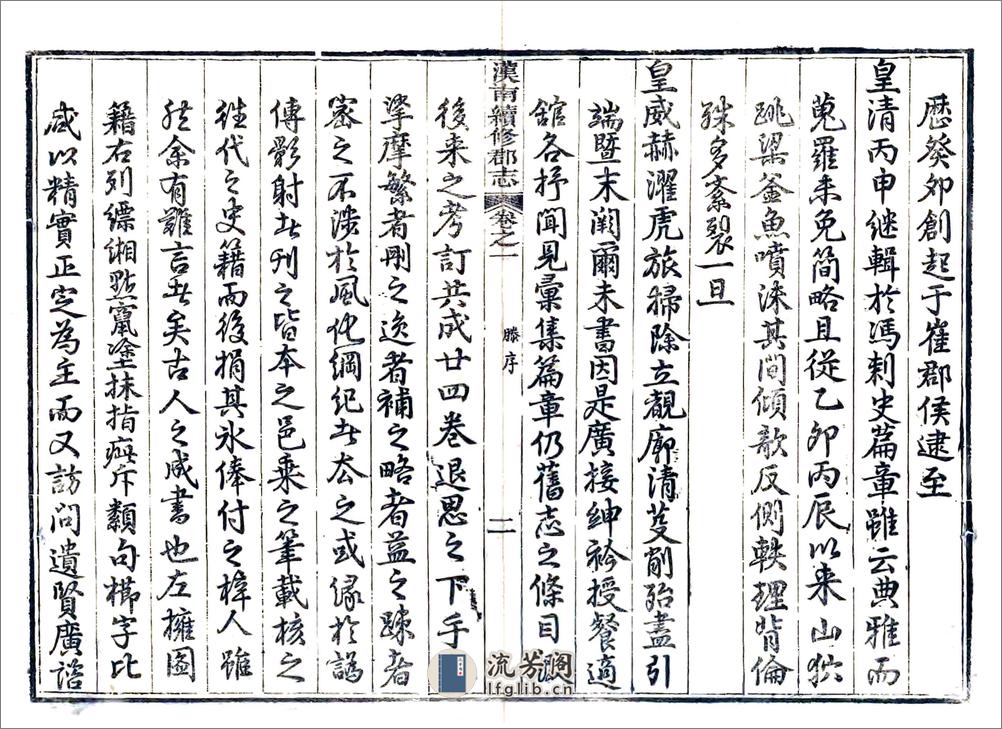 歷癸夘創起于崔郡侯逮至
皇清丙申継輯於馮刺史篇章雖云典雅而
蒐羅未免簡略且從乙夘丙辰以来山狖
跳梁釜魚噴沫其間傾欹反側軼理背倫
殊多紊裂一旦
皇威赫濯虎旅掃除立覩廓清芟削殆盡引
端暨末闕爾未書因是廣接紳衿授餐適
舘各抒聞見彙集篇章仍舊志之條目
漢南續修郡志 卷之一 滕序 二
後来之考訂共成廿四卷退思之下手
擘摩繁者刪之逸者補之略者益之踈者
密之不渉於風化綱紀者夲之或緣於譌
傳影射者刊之皆本之邑乗之筆載核之
徃代之史籍而後捐其氷俸付之梓人雖
然余有難言者矣古人之成書也左擁圖
籍右列縹緗點竄塗抹指疵斥纇句櫛字比
咸以精實正定為主而又訪問遺賢廣諮
流芳阁
lfglib.cn